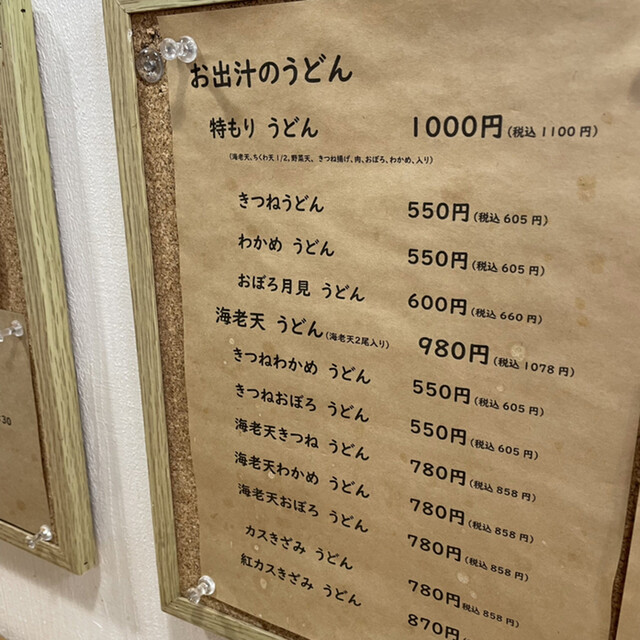 お出汁のうどん
特もり うどん 1000円(税込1100円)
(海老天、ちくわ天1/2、野菜天、きつね揚げ、肉、おぼろ、わかめ、入り)
きつねうどん 550円(税込605円)
わかめ うどん 550円(税込605円)
おぼろ月見 うどん 600円(税込660円)
海老天 うどん(海老天2尾入り) 980円(税込1078円)
きつねわかめ うどん 550円(税込605円)
きつねおぼろ うどん 550円(税込605円)
海老天きつね うどん 780円(税込858円)
海老天わかめ うどん 780円(税込858円)
海老天おぼろ うどん 780円(税込858円)
カスきざみ うどん 780円(税込858円)
紅カスきざみ うどん 870円
:30